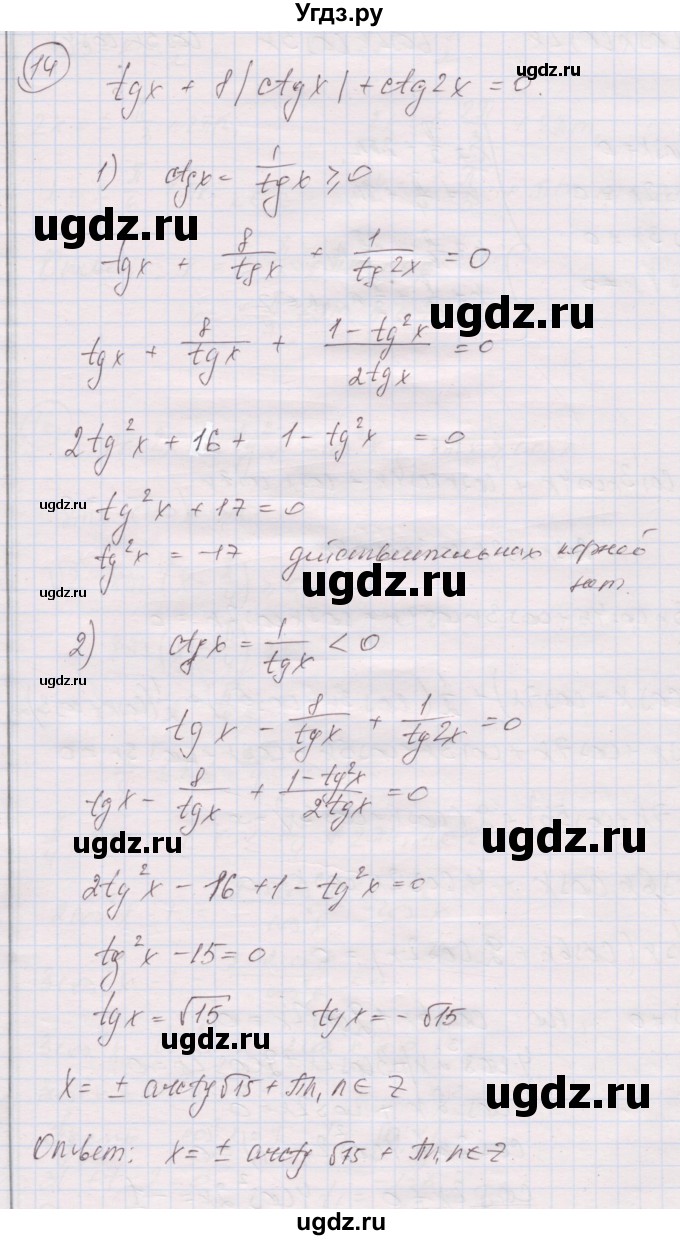 Угдз.ру
14
tgx + 8|ctgx| + ctg2x = 0.
1) ctgx = 1/tgx ≥ 0
ugdz.ru
tgx + 8/tgx + 1/tg2x = 0
ugdz.ru
tgx + 8/tgx + (1-tg²x)/2tgx = 0
2tg²x + 16 + 1 - tg²x = 0
ugdz.ru
tg²x + 17 = 0
tg²x = -17 действительных корней
ugdz.ru
ugdz.ru
нет.
2) ctgx = 1/tgx < 0
ugdz.ru
tgx - 8/tgx + 1/tg2x = 0
tgx - 8/tgx + (1-tg²x)/2tgx = 0
ugdz.ru
ugdz.ru
2tg²x - 16 + 1 - tg²x = 0
tg²x - 15 = 0
tgx = √15 tgx = -√15
ugdz.ru
x = ± arctg√15 + πn, n ∈ Z
ugdz.ru
Ответ: x = ± arctg √15 + πn, n ∈ Z.
ugdz.ru